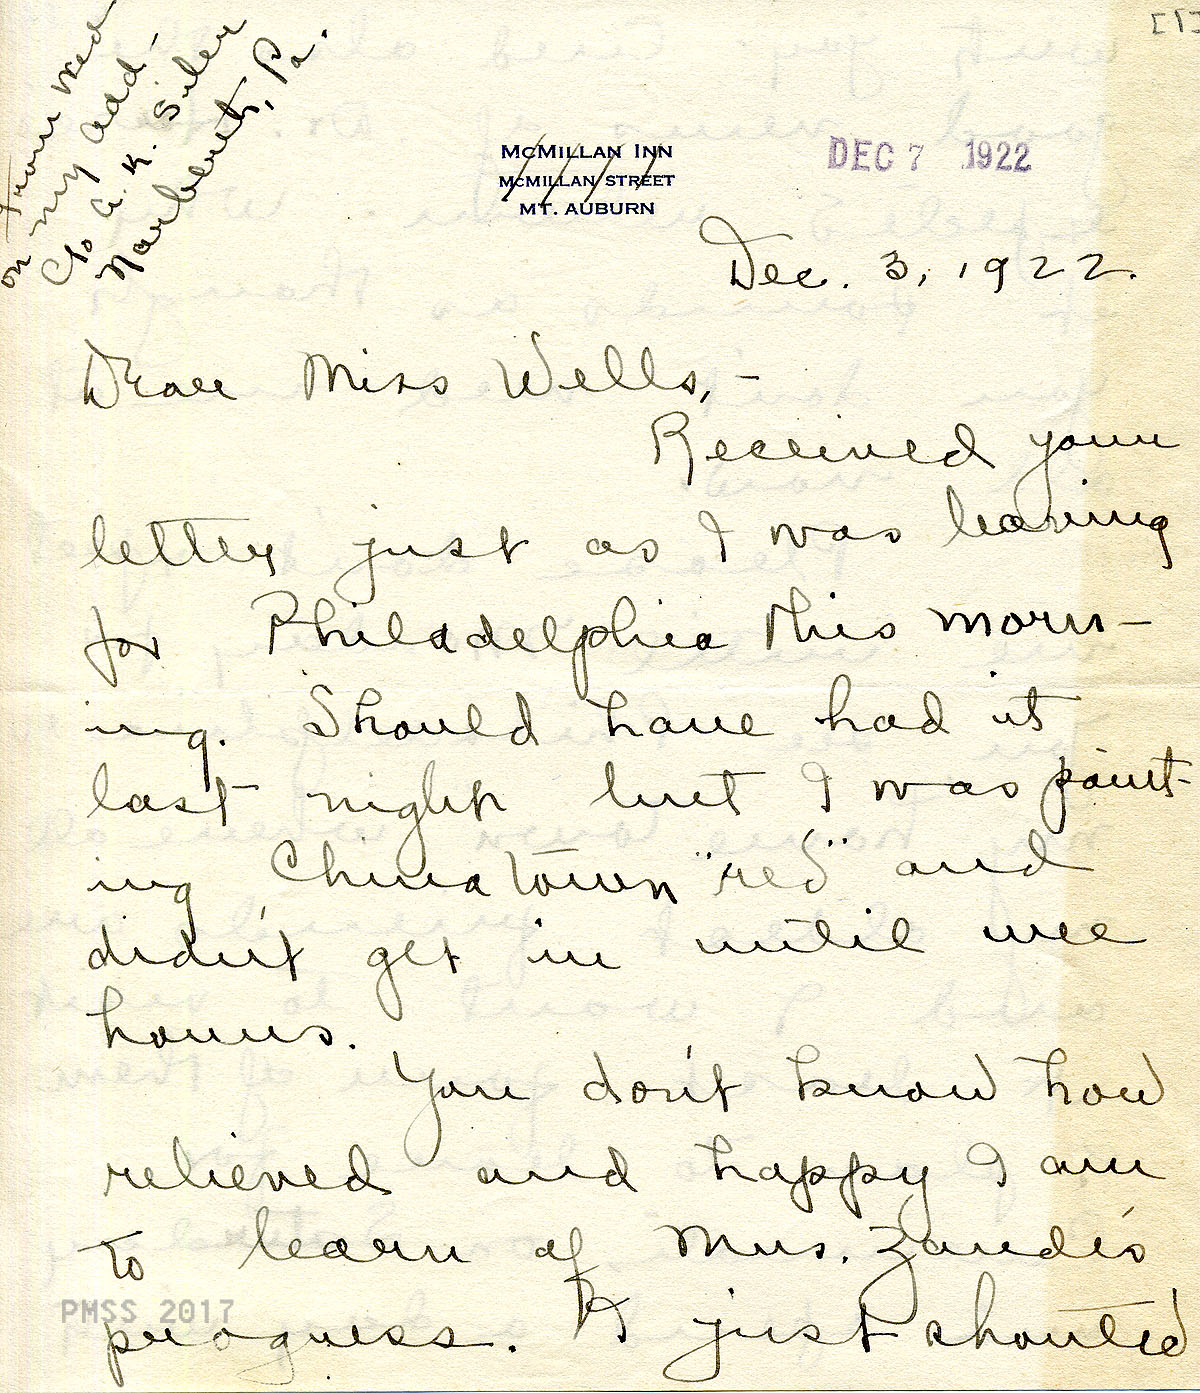 [1]
on From Wed
my add –
c/o A. K. Siler
Narberth, Pa.
McMillan Inn
McMillan Street
Mt. Auburn
DEC 7 1922
Dec. 3, 1922.
Dear Miss Wells, –
Received your
letter just as I was leaving
for Philadelphia this morn-
ing. Should have had it
last night but I was paint-
ing Chinatown "red" and
didn't get in until wee
hours.
You don't know how
relieved and happy I am
to learn of Mrs. Zande's
progress. I just shouted
PMSS 2017